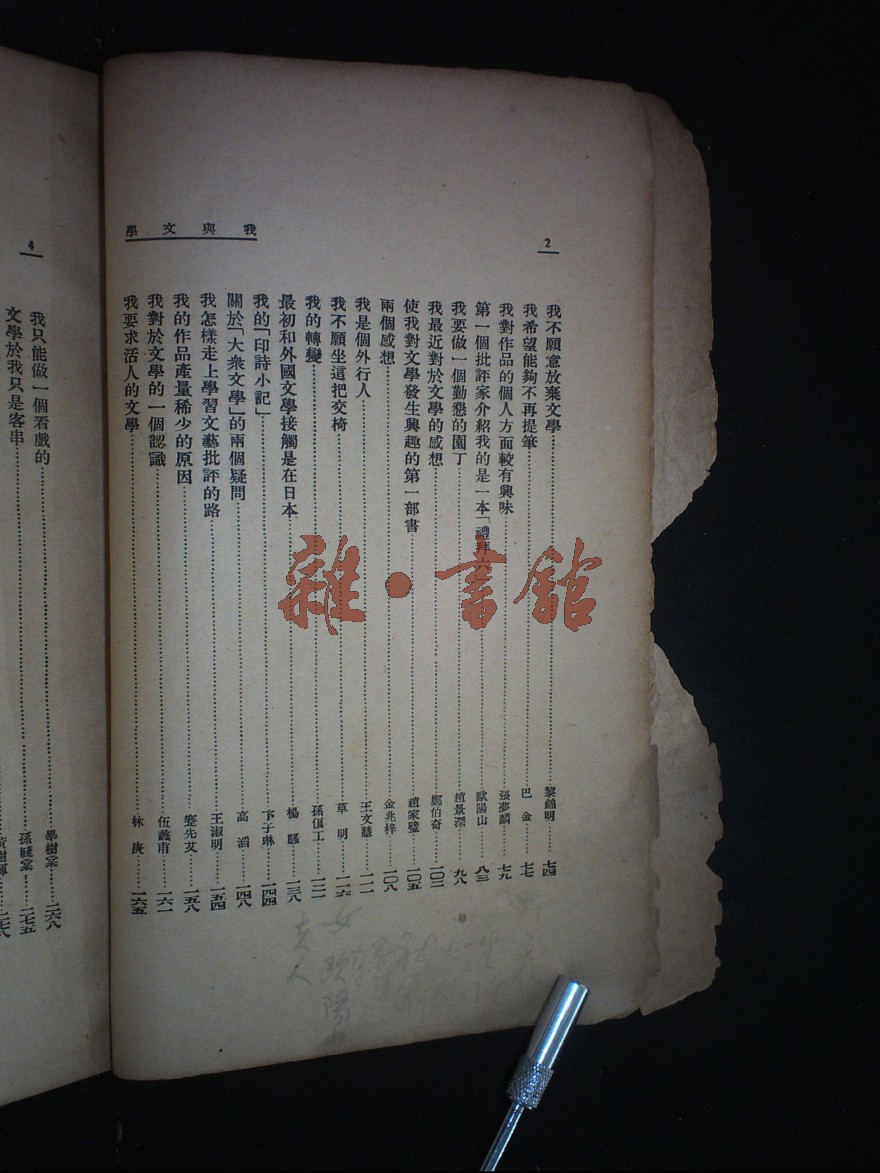 2
我與文學
我不願意放棄文學……黎錦明 七四
我希望能夠不再提筆……巴金 七七
我對作品的個人方面較有興味……張夢麟 七九
第一個批評家介紹我的是一本「禮拜六……歐陽山 八三
我要做一個勤懇的園丁……趙景深 九八
我最近對於文學的感想……鄭伯奇 一〇二
使我對文學發生興趣的第一部書……趙家璧 一〇五
兩個感想……金兆梓 一〇八
我是個外行人……王文慧 一一一
我不願坐這把交椅……草明 一一六
我的轉變……孫俍工 一二一
最初和外國文學接觸是在日本……楊騷 一三八
我的「印詩小記」……卞之琳 一四四
關於「大衆文學」的兩個疑問……高滔 一四八
我怎樣走上學習文藝批評的路……王淑明 一五四
我的作品產量稀少的原因……蹇先艾 一五八
我對於文學的一個認識……伍蠡甫 一六一
我要求活人的文學……林庚 一六五
4
我只能做一個看戲的……畢樹棠 二六八
文學於我只是客串……孫毓棠 二七五
黃樹輝 二七八
雜·書館
女
歐陽山
夫人